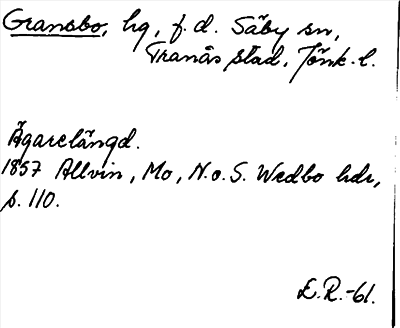 Gransbo, hg, f.d. Säby sn,
Tranås stad, Jönk. l.
Ägarelängd.
1857 Allvin, Mo, N.o.S. Wedbo hdr,
s. 110.
E.R.-61.